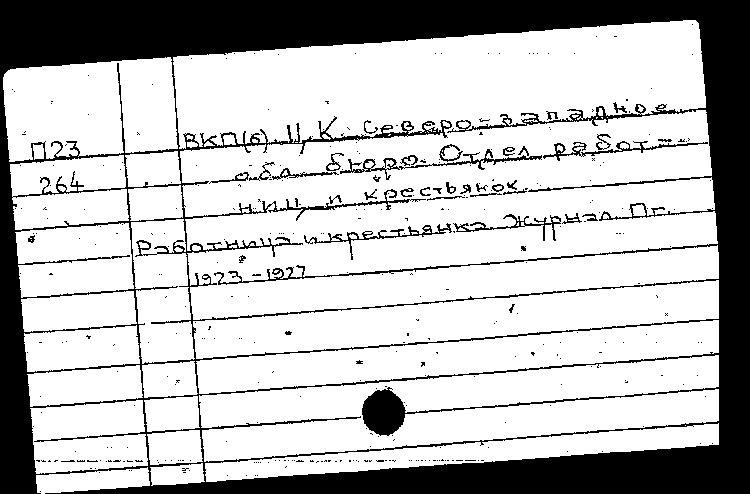 П23 ВКП(б) Ц.К. Северо-западное
264 обл. бюро. Отдел работ-
ниц и крестьянок.
Работница и крестьянка. Журнал. Пг.
1923-1927